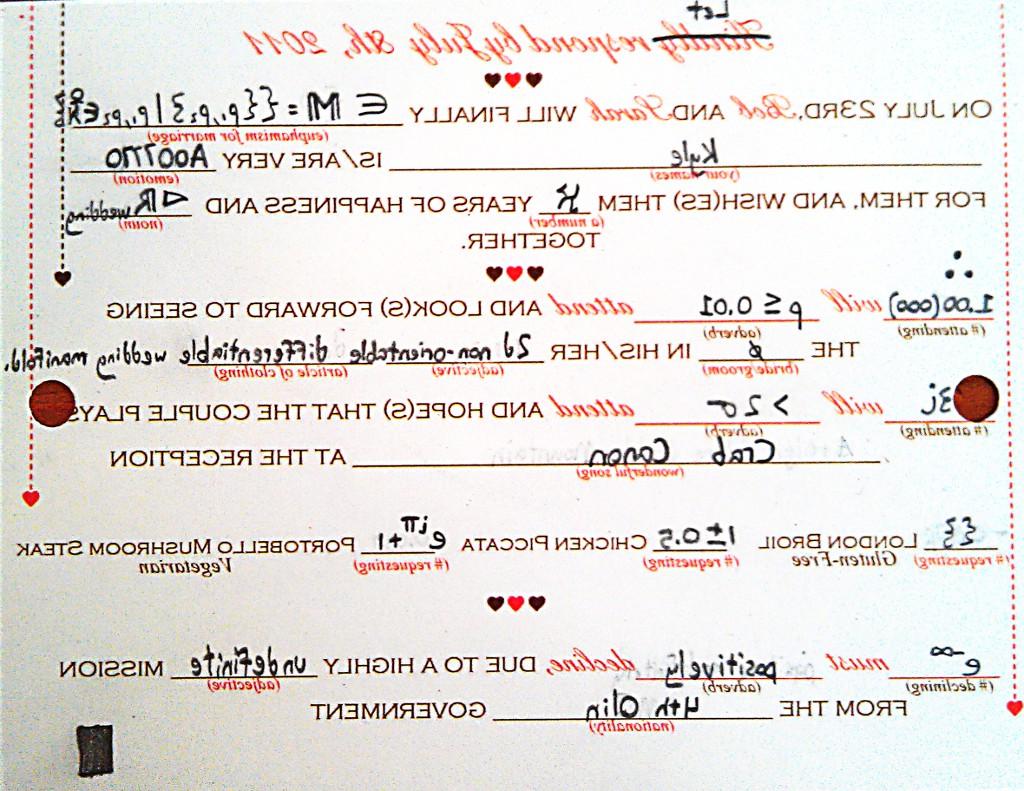 Let
Kindly respond by July 8th, 2011
ON JULY 23RD, Bob AND Sarah WILL FINALLY ∈ M = {{p₁,p₂} | p₁,p₂ ∈
(euphamism for marriage)
Kyle IS/ARE VERY
(your names) (emotion)
FOR THEM, AND WISH(ES) THEM YEARS OF HAPPINESS AND wedding
(a number) (noun)
TOGETHER.
∴
1.00(000) will p ≤ 0.01 attend AND LOOK(S) FORWARD TO SEEING
(# attending) (adverb)
THE IN HIS/HER 2d non-orientable differentiable wedding manifold.
(bride/groom) (adjective) (article of clothing)
3j will > 2σ attend AND HOPE(S) THAT THE COUPLE PLAYS
(# attending) (adverb)
Crab Canon AT THE RECEPTION
(wonderful song)
{} LONDON BROIL 1±0.5 CHICKEN PICCATA e^iπ+1 PORTOBELLO MUSHROOM STEAK
(# requesting) Gluten-Free (# requesting) (# requesting) Vegetarian
e^-∞ must positively decline, DUE TO A HIGHLY undefinite MISSION
(# declining) (adverb) (adjective)
FROM THE 4th Olin GOVERNMENT
(nationality)